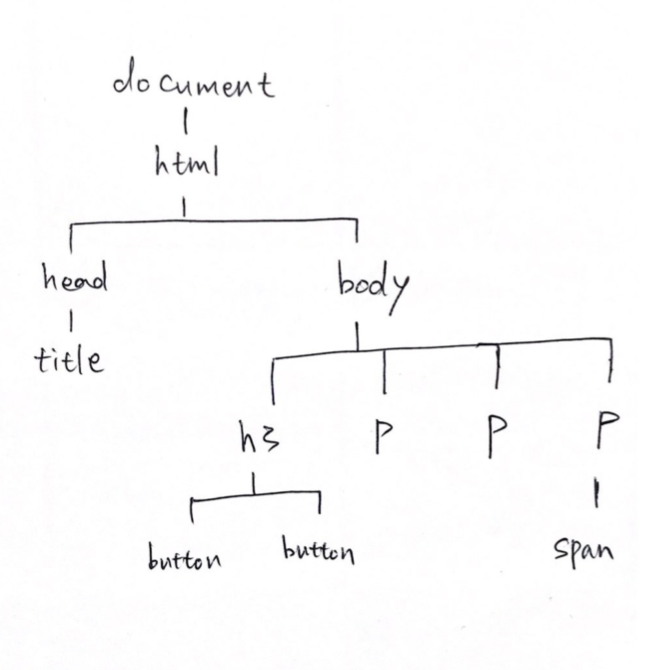 document
html
head body
title
h3 P P P
button button span